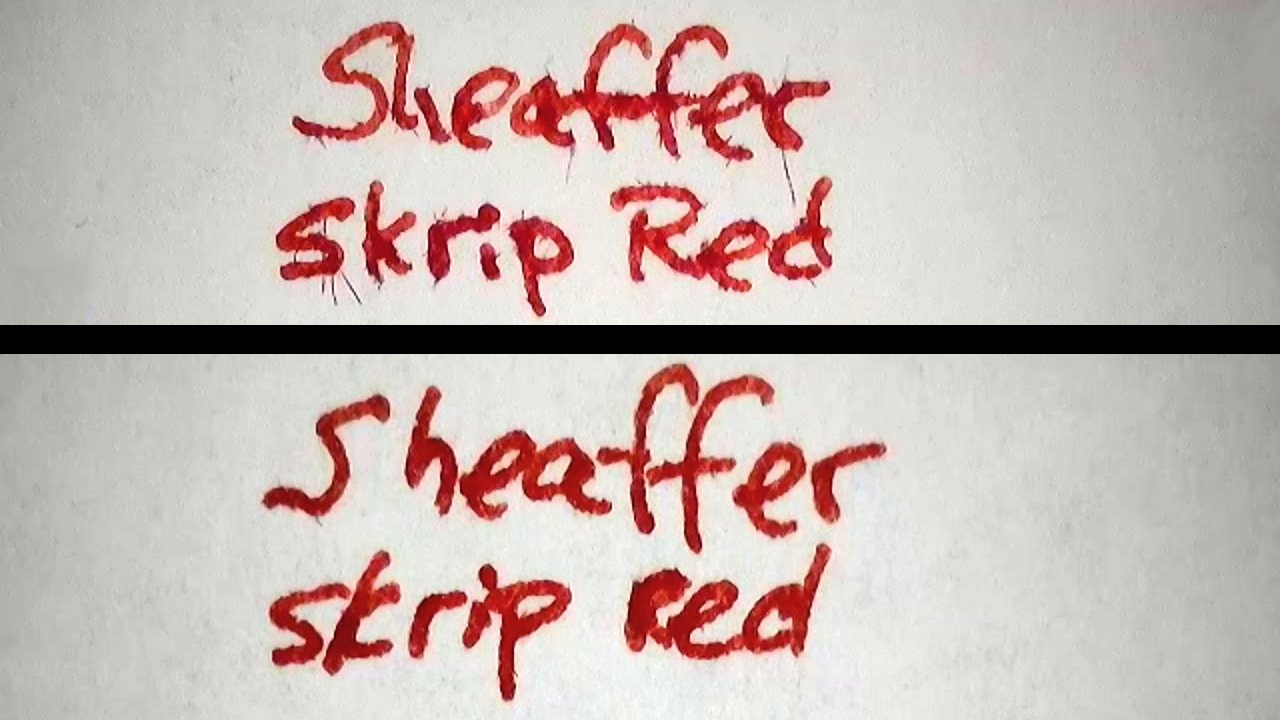 Sheaffer
skrip Red
Sheaffer
skrip Red